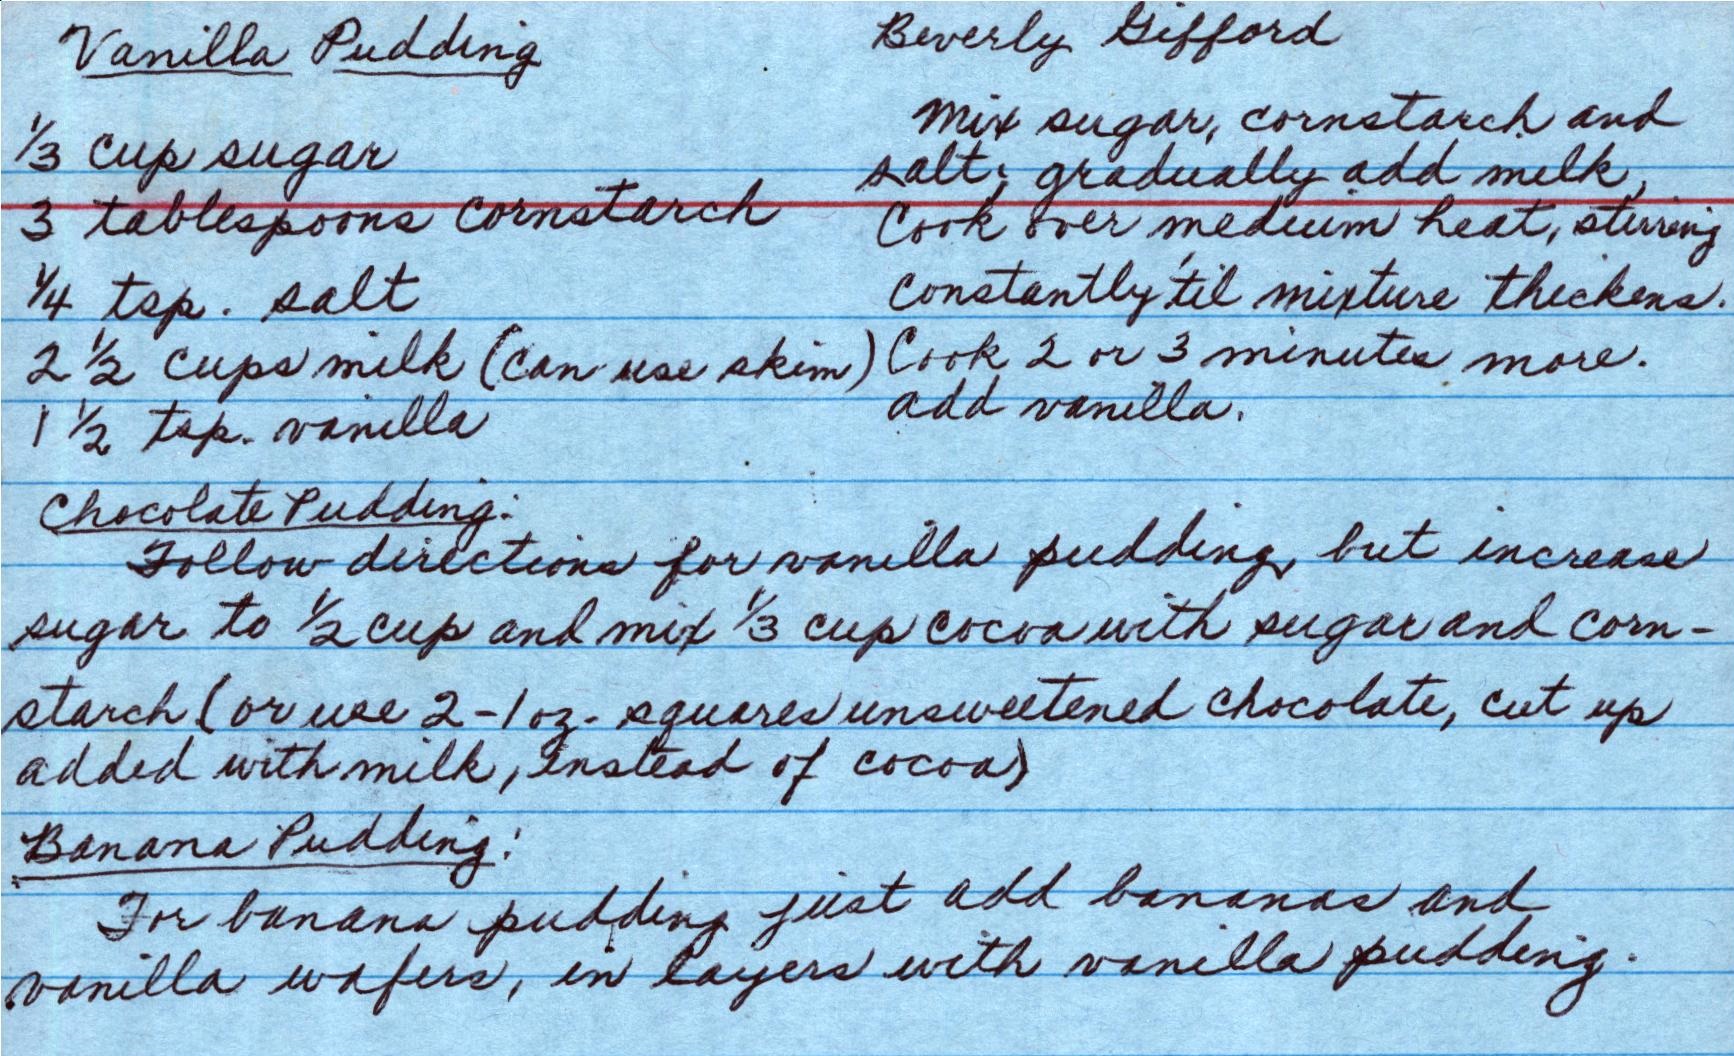 Vanilla Pudding
Beverly Gifford
1/3 cup sugar
3 tablespoons cornstarch
1/4 tsp. salt
2 1/2 cups milk (can use skim)
1 1/2 tsp. vanilla
Mix sugar, cornstarch and
salt; gradually add milk,
Cook over medium heat, stirring
constantly 'til mixture thickens.
Cook 2 or 3 minutes more.
add vanilla.
Chocolate Pudding:
Follow directions for vanilla pudding, but increase
sugar to 1/2 cup and mix 1/3 cup cocoa with sugar and corn-
starch (or use 2-1 oz. squares unsweetened chocolate, cut up
added with milk, instead of cocoa)
Banana Pudding:
For banana pudding just add bananas and
vanilla wafers, in layers with vanilla pudding.